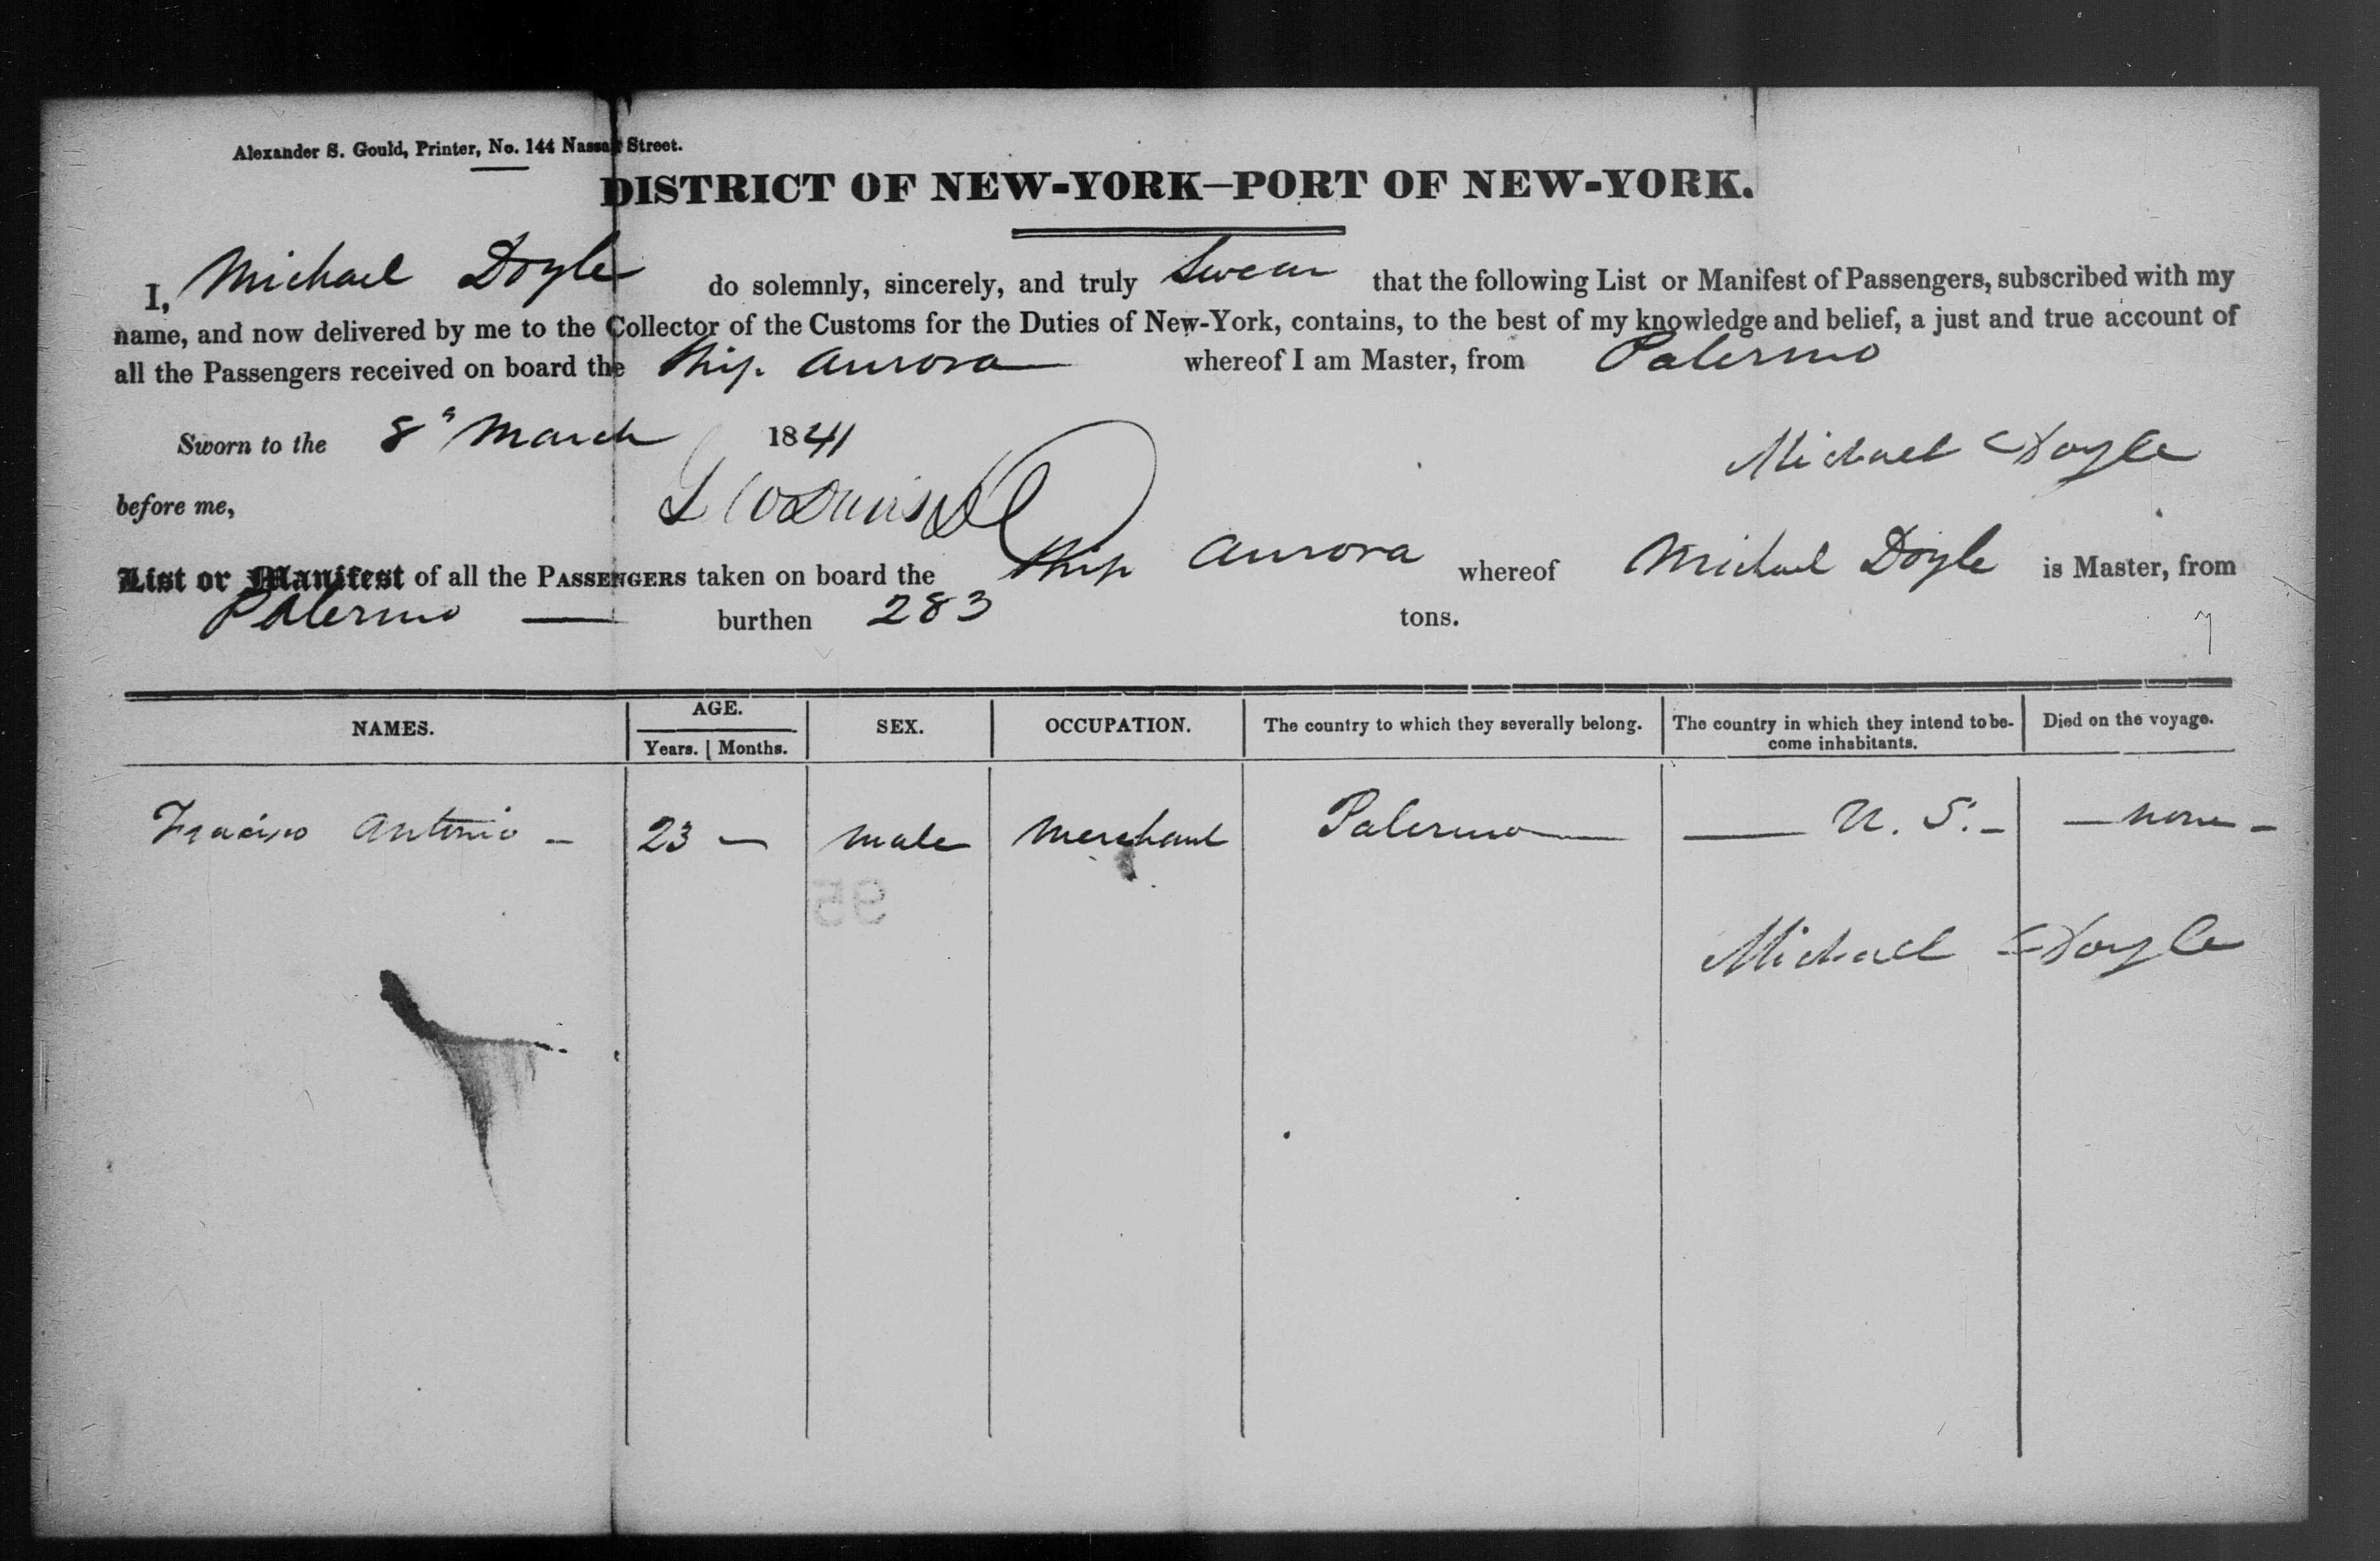 Alexander S. Gould, Printer, No. 144 Nassau Street.
DISTRICT OF NEW-YORK—PORT OF NEW-YORK.
I, Michael Doyle do solemnly, sincerely, and truly Swear that the following List or Manifest of Passengers, subscribed with my
name, and now delivered by me to the Collector of the Customs for the Duties of New-York, contains, to the best of my knowledge and belief, a just and true account of
all the Passengers received on board the Ship Aurora whereof I am Master, from Palermo
Sworn to the 8" March 1841
Michael Doyle
before me,
List or Manifest of all the PASSENGERS taken on board the Ship Aurora whereof Michael Doyle is Master, from
Palermo — burthen 283 tons.
NAMES. AGE. SEX. OCCUPATION. The country to which they severally belong. The country in which they intend to be- Died on the voyage.
Years. Months. come inhabitants.
Antonio - 23 — male Merchant Palermo — — U. S. - — none -
95
Michael Doyle